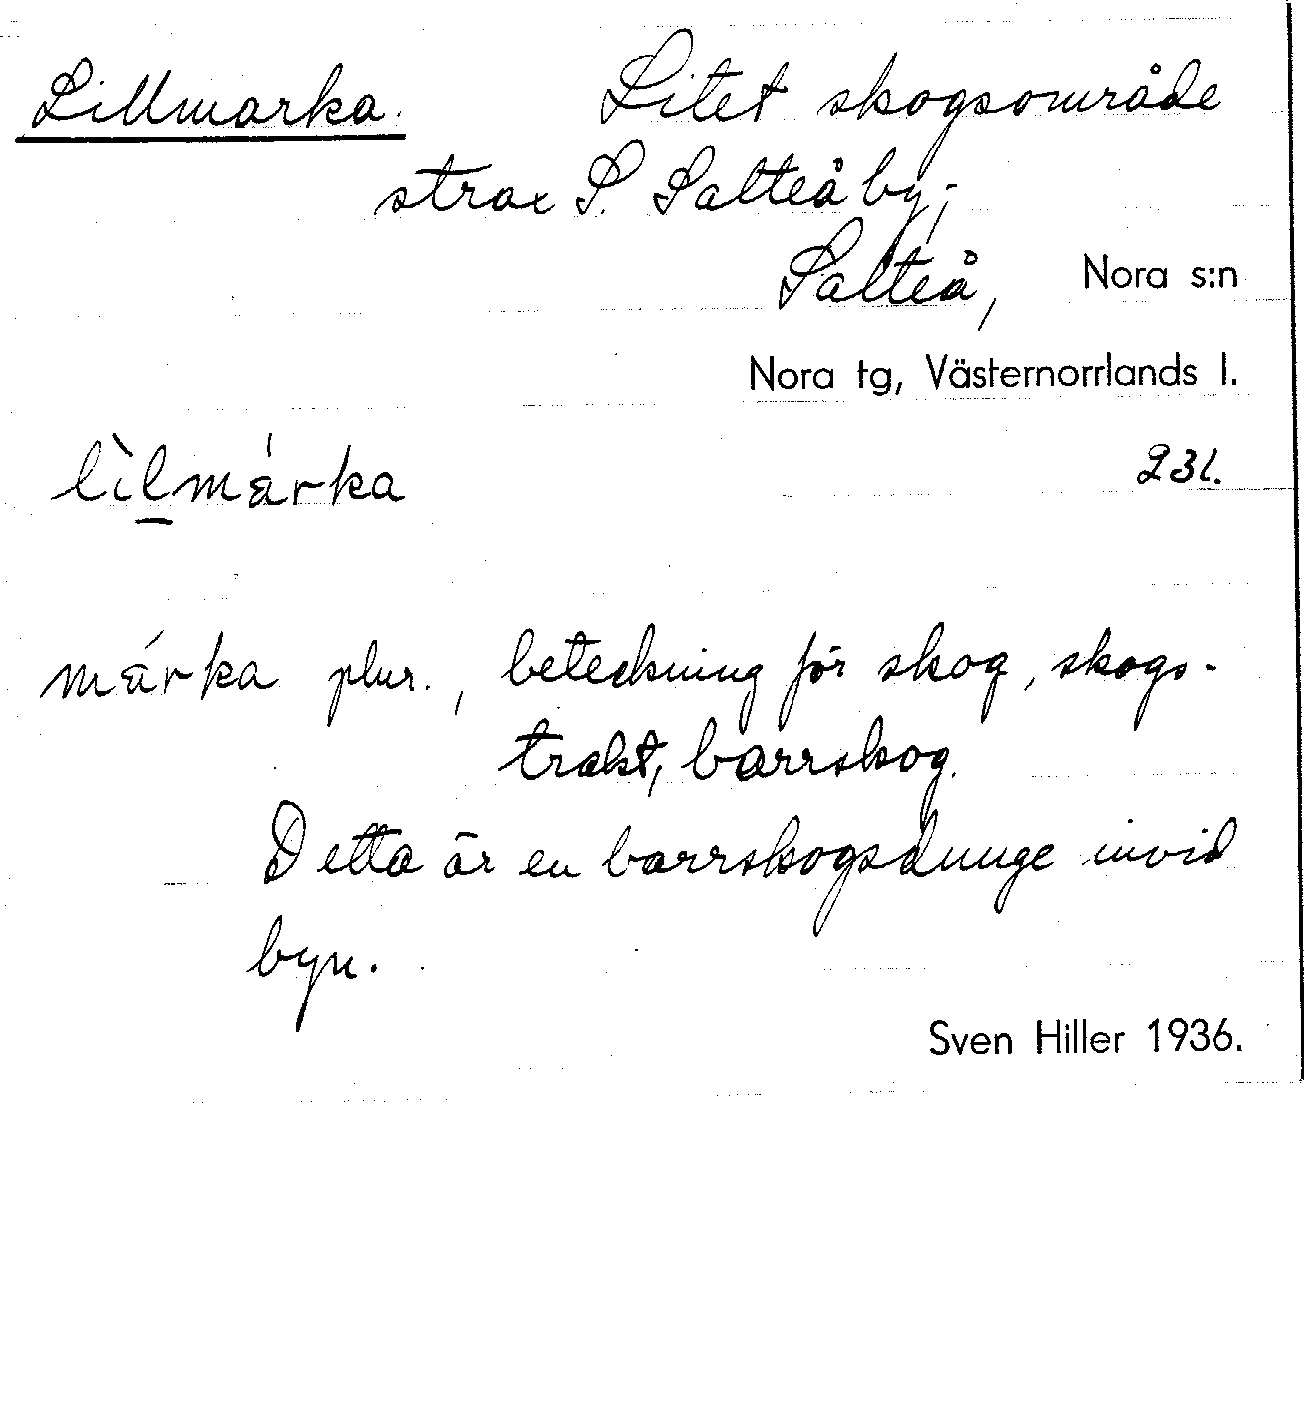 Lillmarka. Litet skogsområde
strax S. Salteå by;
Salteå, Nora s:n
Nora tg, Västernorrlands l.
lìlmárka 231.
márka plur., beteckning för skog, skogs-
trakt, barrskog.
Detta är en barrskogsdunge invid
byn.
Sven Hiller 1936.